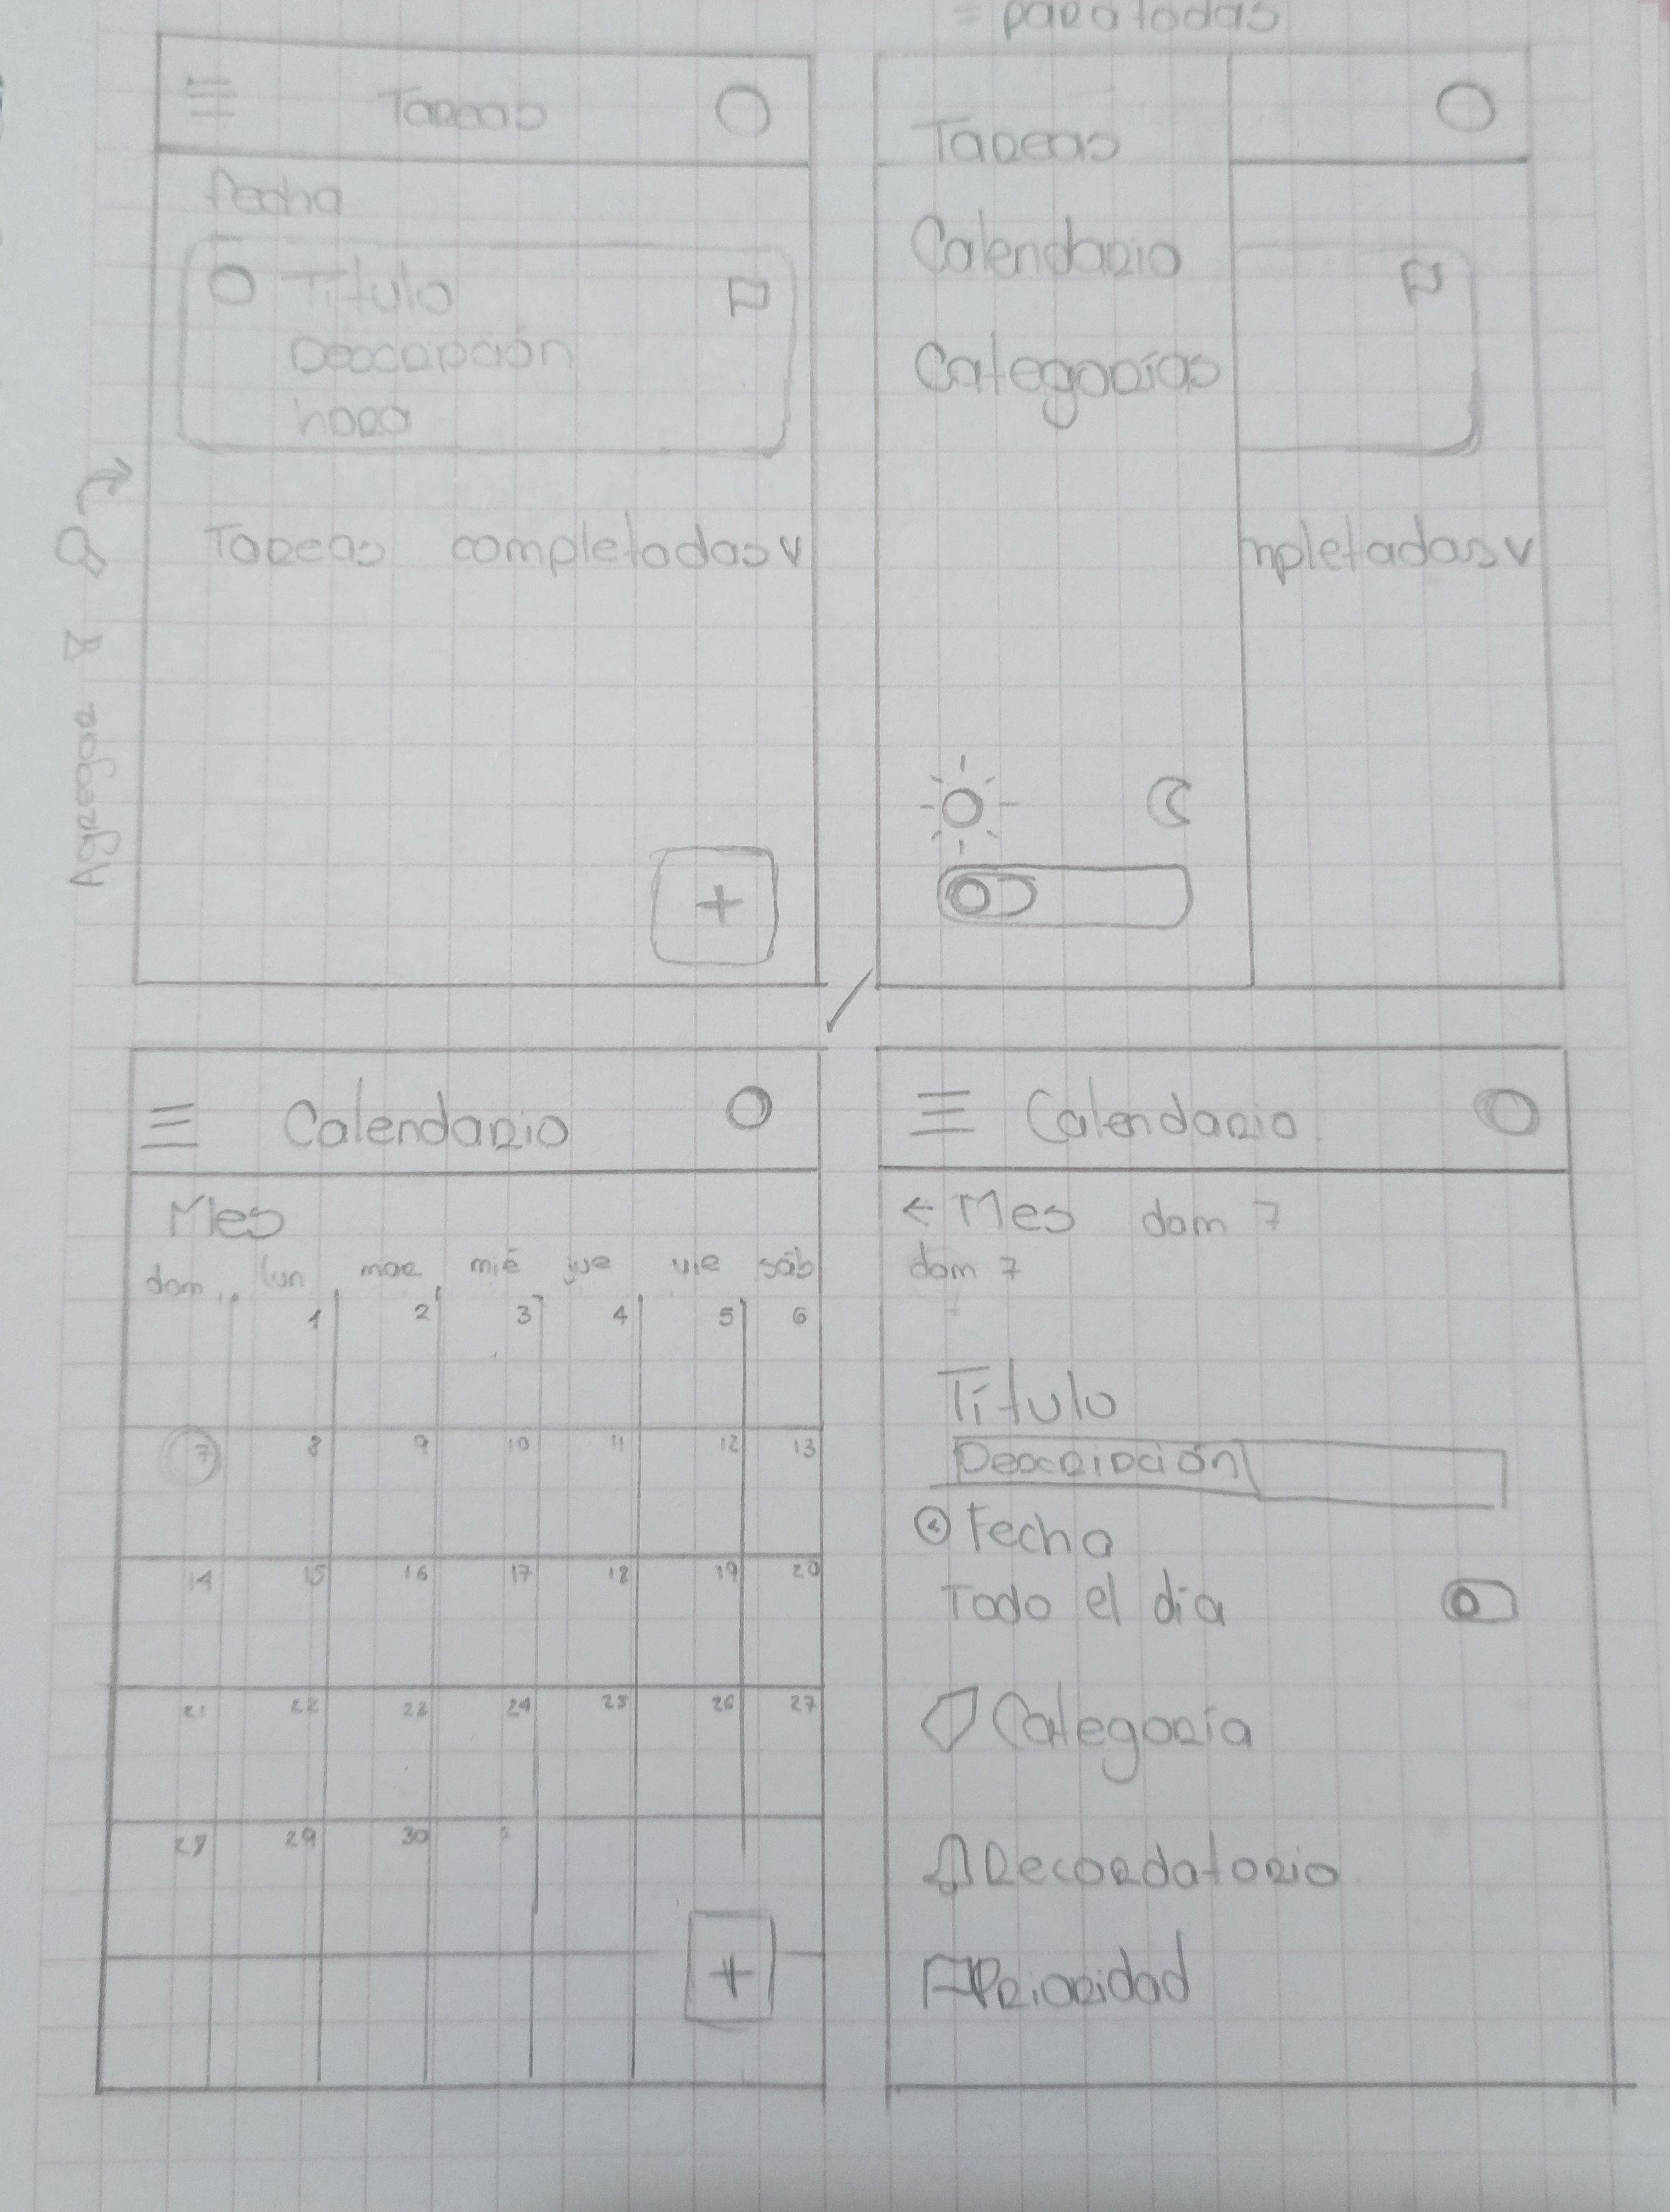 = para todas
Tareas
fecha
Título
Descripción
hora
Tareas completadas v
+
Agregar
Tareas
Calendario
Categorías
mpletadas v
Calendario
Mes
dom lun mar mié jue vie sáb
1 2 3 4 5 6
7 8 9 10 11 12 13
14 15 16 17 18 19 20
21 22 23 24 25 26 27
28 29 30
+
Calendario
← Mes dom 7
dom 7
Título
Descripción
Fecha
Todo el día
Categoría
Recordatorio
Prioridad